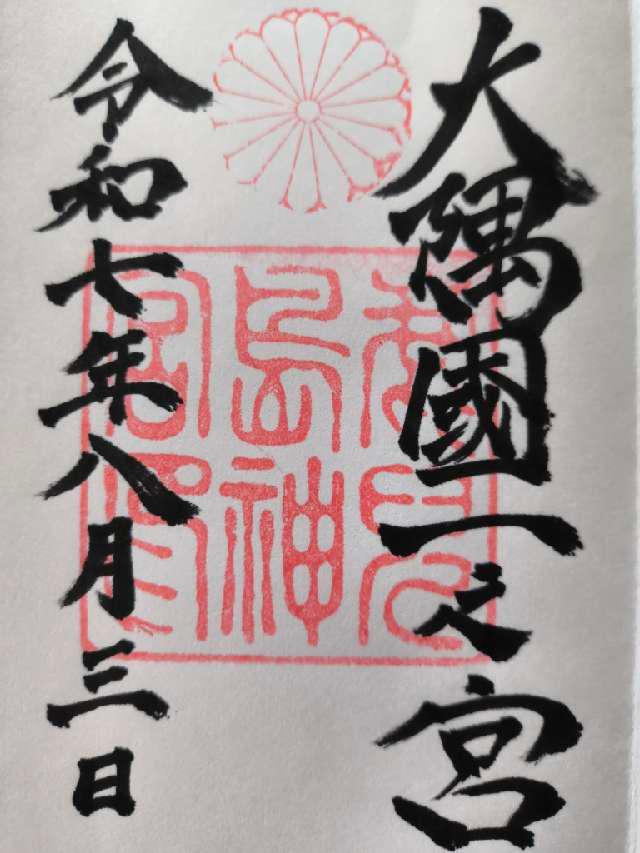 大隅國一之宮
鹿兒島神宮印
令和七年八月三日